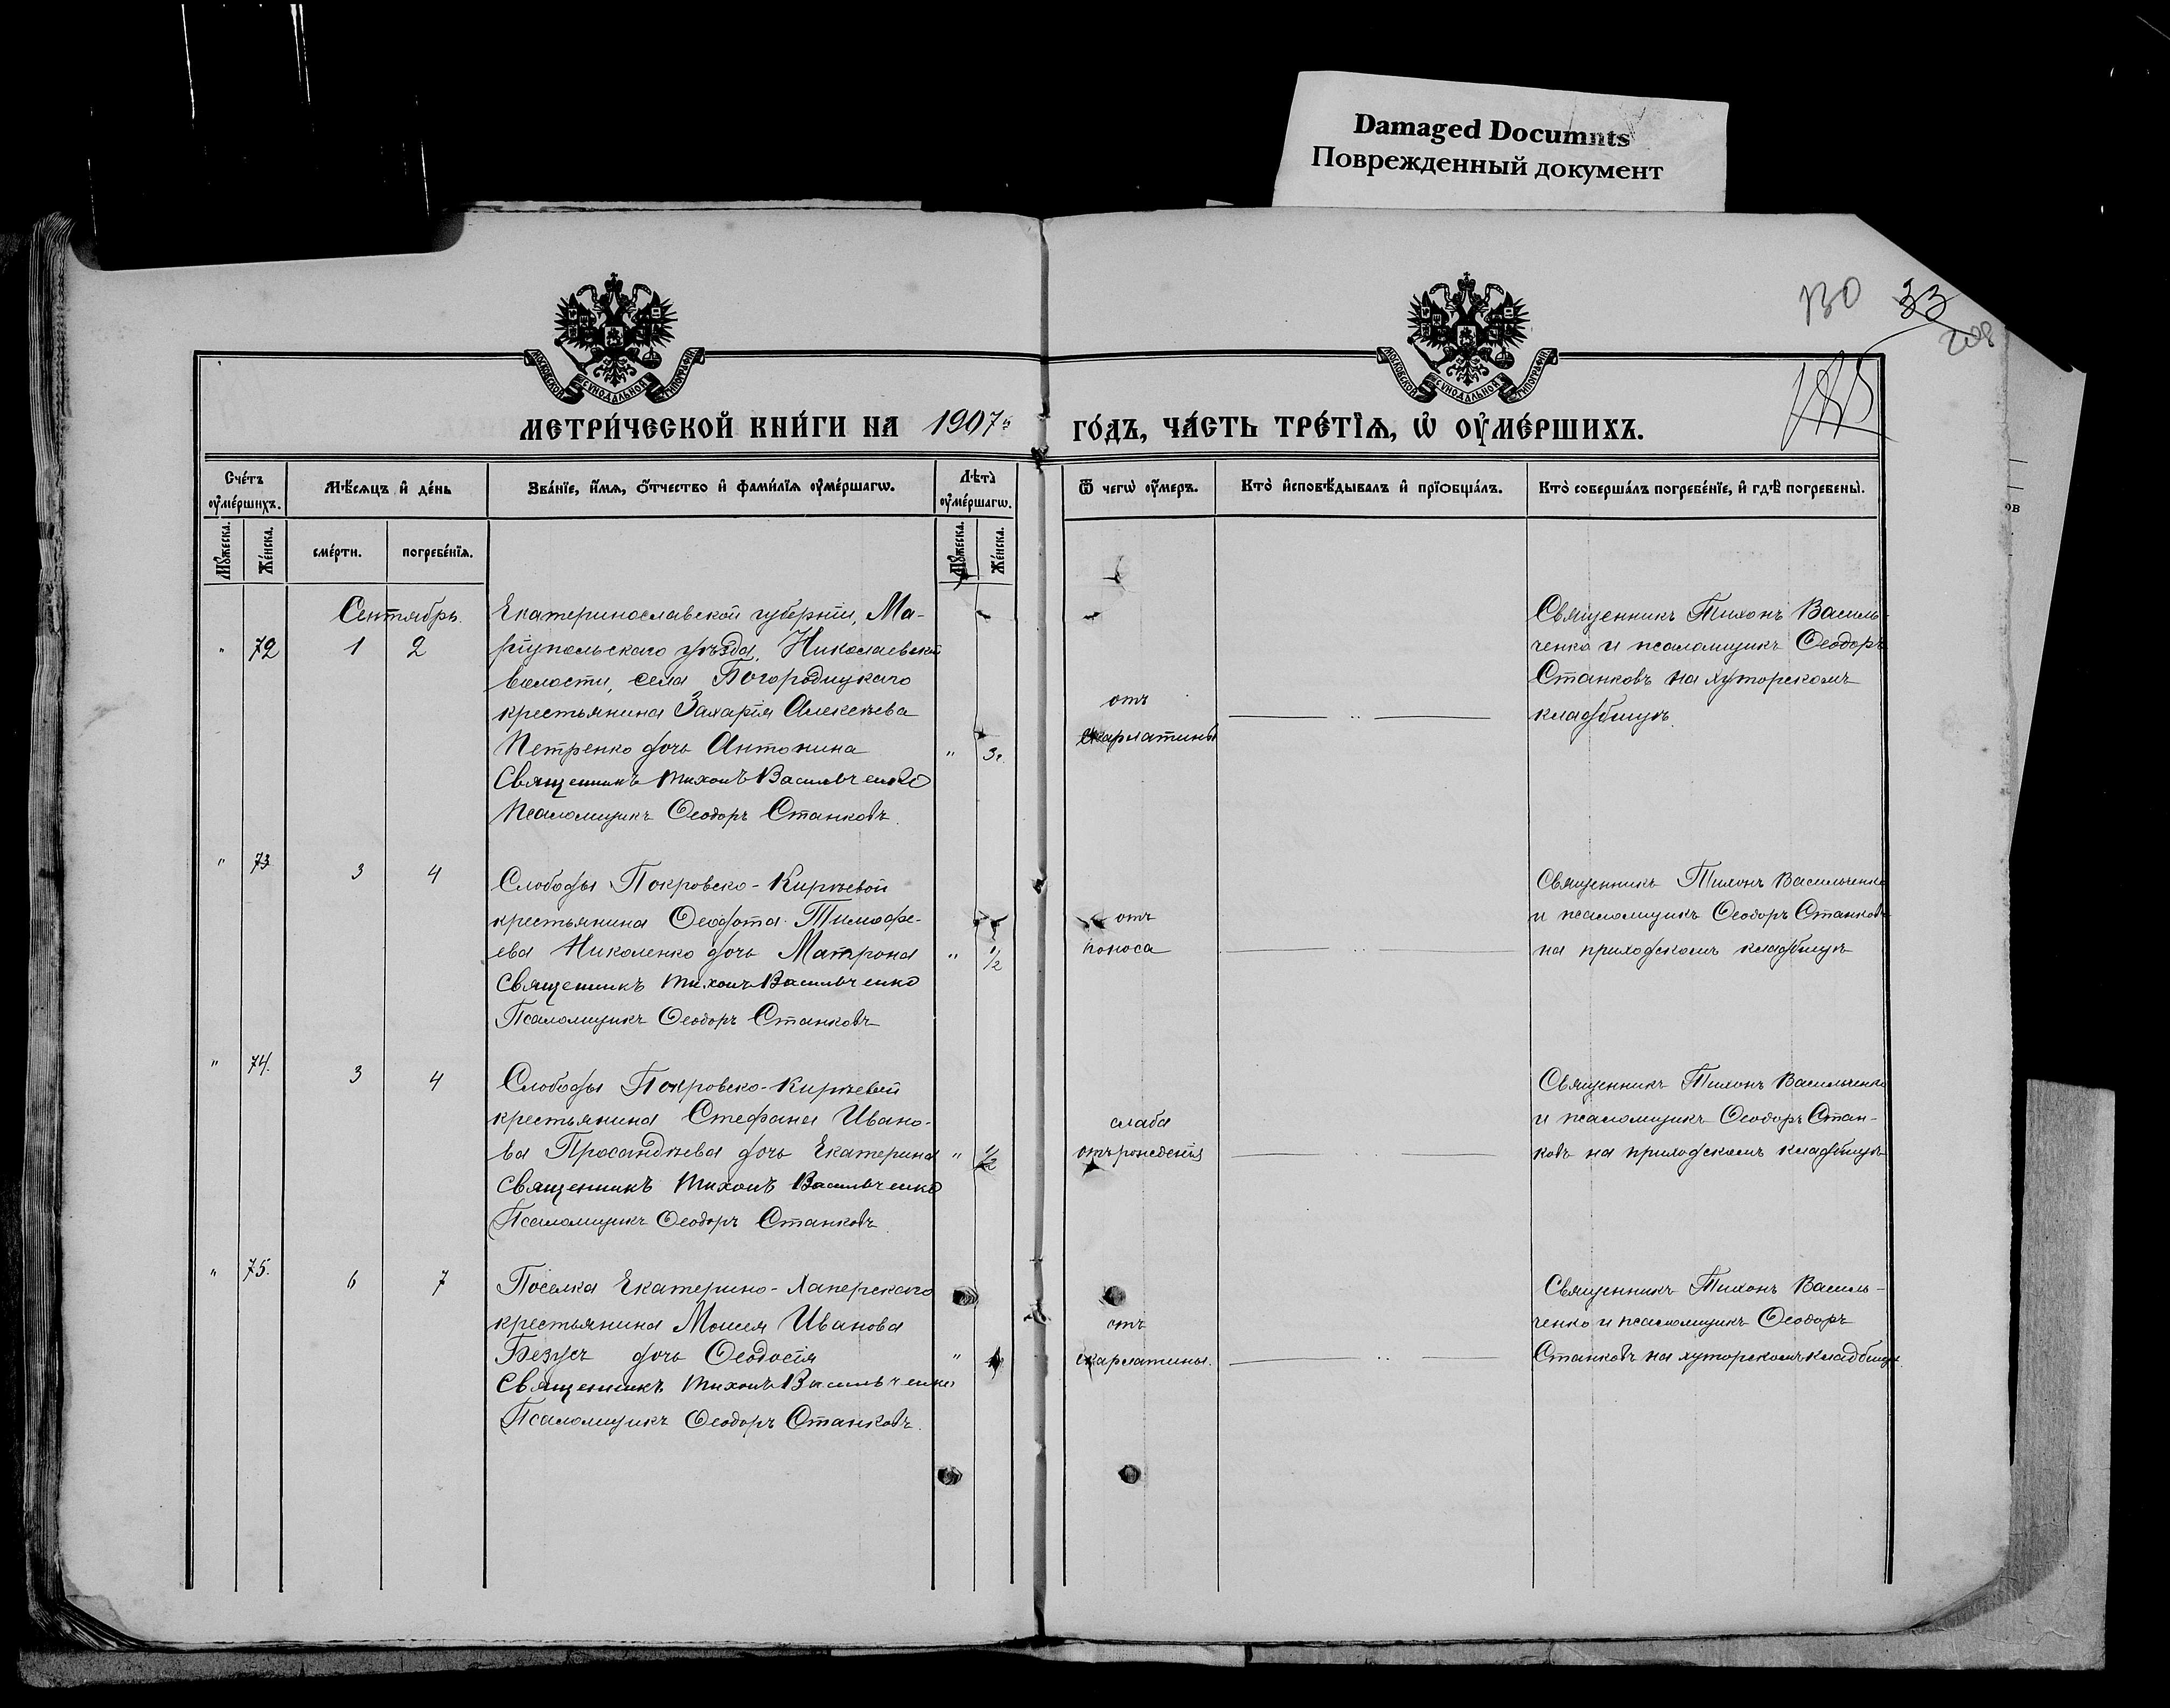 Damaged Documnts
Поврежденный документ
130 33
208
МОСКОВСКОЙ СѴНОДАЛЬНОЙ ТИПОГРАФІИ
МОСКОВСКОЙ СѴНОДАЛЬНОЙ ТИПОГРАФІИ
МЕТРИ́ЧЕСКОЙ КНИ́ГИ НА 1907й ГО́ДЪ, ЧА́СТЬ ТРЕ́ТІѦ, Ѡ҆ ОУ҆МЕ́РШИХЪ.
Сче́тъ оу҆ме́ршихъ.
Мѣ́сяцъ и҆ де́нь
Зва́нїе, и҆́мѧ, ѻ҆́тчество и҆ фами́лїѧ оу҆ме́ршагѡ.
Лѣ́та оу҆ме́ршагѡ.
Ѿ чегѡ̀ оу҆́меръ.
Кто̀ и҆сповѣ́дывалъ и҆ прїѻбща́лъ.
Кто̀ соверша́лъ погребе́нїе, и҆ гдѣ̀ погребены̀.
Мꙋ́жеска.
Же́нска.
сме́рти.
погребе́нїѧ.
Мꙋ́жеска.
Же́нска.
Сентябрь.
" 72 1 2
Екатеринославской губерніи, Ма-
ріупольскаго уѣзда, Николаевской
волости, села Богородицкаго
крестьянина Захарія Алексѣева
Петренко дочь Антонина
Священникъ Тихонъ Васильченко
Псаломщикъ Ѳеодоръ Станковъ.
" 3г.
отъ
скарлатины
Священникъ Тихонъ Василь-
ченко и псаломщикъ Ѳеодоръ
Станковъ на хуторскомъ
кладбищѣ.
" 73 3 4
Слободы Покровско-Кирѣевой
крестьянина Ѳеодота Тимофе-
ева Николенко дочь Матрона
Священникъ Тихонъ Васильченко
Псаломщикъ Ѳеодоръ Станковъ
" 1/2
отъ
поноса
Священникъ Тихонъ Васильченко
и псаломщикъ Ѳеодоръ Станковъ
на приходскомъ кладбищѣ
" 74. 3 4
Слободы Покровско-Кирѣевой
крестьянина Стефана Ивано-
ва Просандѣева дочь Екатерина
Священникъ Тихонъ Васильченко
Псаломщикъ Ѳеодоръ Станковъ.
" 1/2
слаба
отъ рожденія
Священникъ Тихонъ Васильченко
и псаломщикъ Ѳеодоръ Стан-
ковъ на приходскомъ кладбищѣ
" 75. 6 7
Поселка Екатерино-Хаперскаго
крестьянина Моисея Иванова
Безусъ дочь Ѳеодосія
Священникъ Тихонъ Васильченко
Псаломщикъ Ѳеодоръ Станковъ.
"
отъ
скарлатины.
Священникъ Тихонъ Василь-
ченко и псаломщикъ Ѳеодоръ
Станковъ на хуторскомъ кладбищѣ.